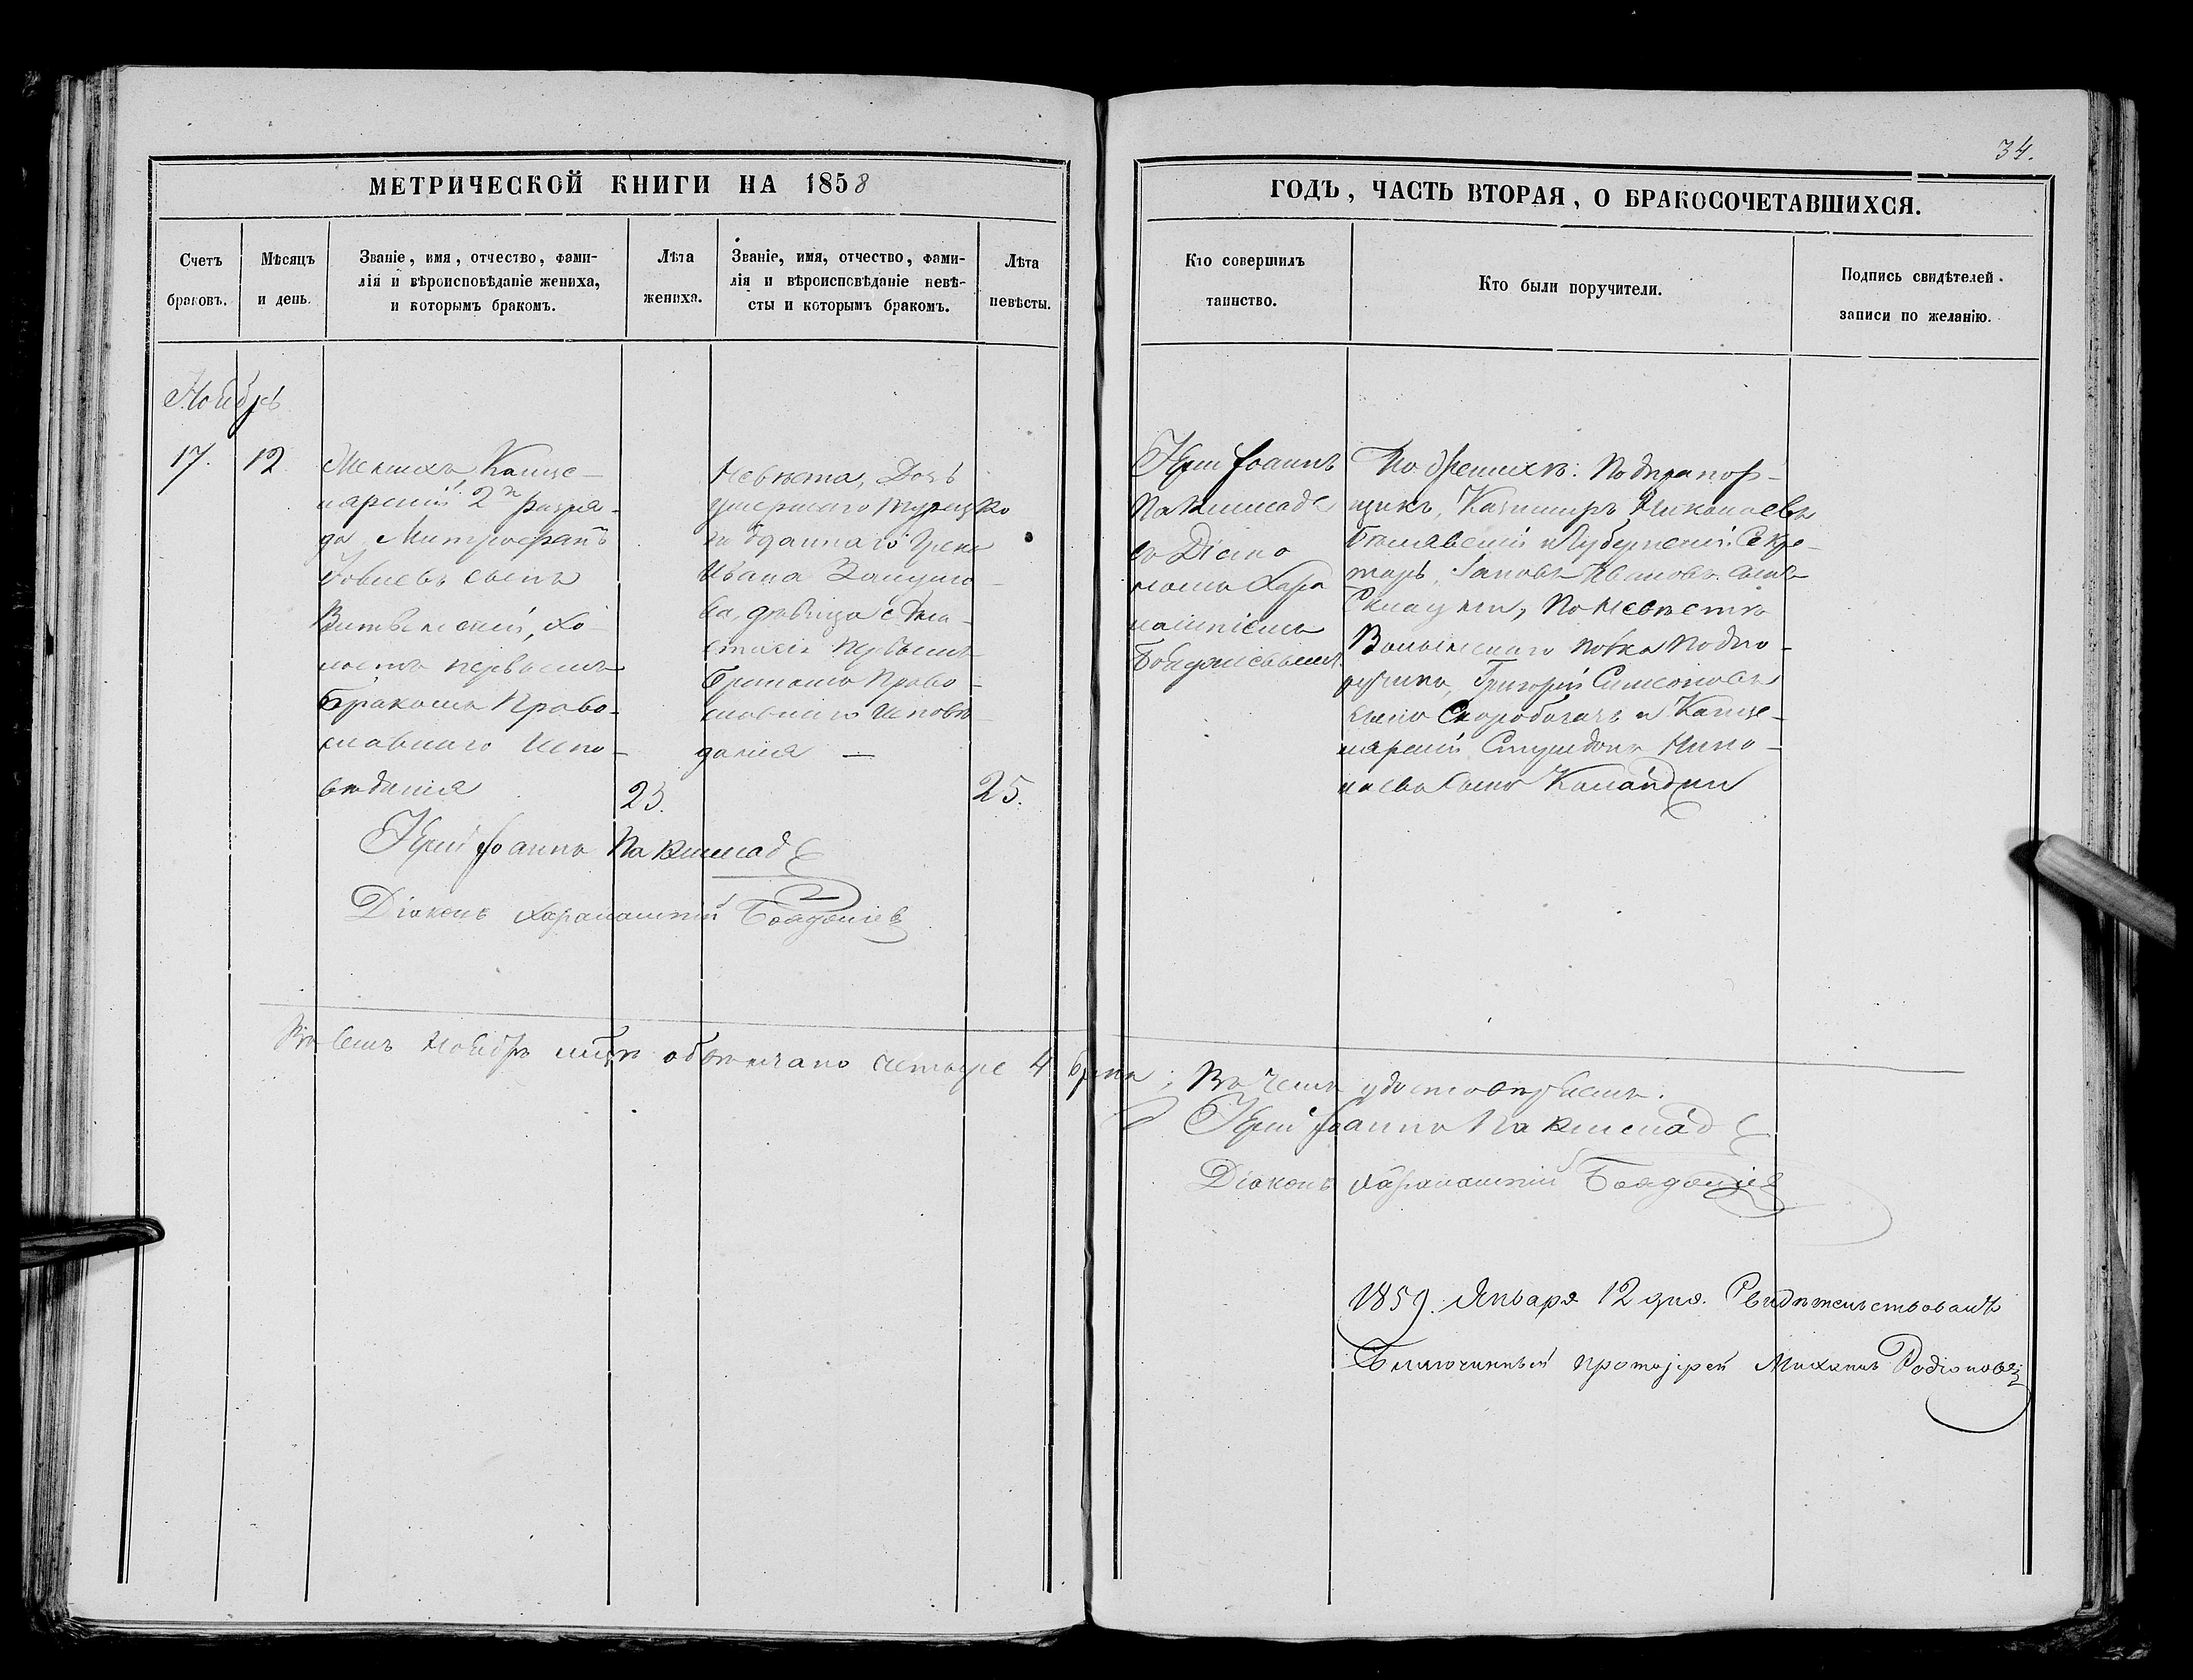 34.
МЕТРИЧЕСКОЙ КНИГИ НА 1858
ГОДЪ, ЧАСТЬ ВТОРАЯ, О БРАКОСОЧЕТАВШИХСЯ.
Счетъ браковъ.
Мѣсяцъ и день.
Званіе, имя, отчество, фами-
лія и вѣроисповѣданіе жениха,
и которымъ бракомъ.
Лѣта
жениха.
Званіе, имя, отчество, фами-
лія и вѣроисповѣданіе невѣ-
сты и которымъ бракомъ.
Лѣта
невѣсты.
Кто совершилъ
таинство.
Кто были поручители.
Подпись свидѣтелей
записи по желанію.
Ноябрь
17. 12
Женихъ, Канце-
лярскій 2го разря-
да, Митрофанъ
сынъ
Витвлискій, хо-
лостъ первымъ
бракомъ Право-
славнаго испо-
вѣданія
23.
Невѣста, Дочь
умершаго турецко
подданнаго Грека
Ивана
ва, дѣвица
первымъ
бракомъ Право-
славнаго исповѣ-
данія —
25.
Іерей Іоаннъ
съ Діако
номъ Хара
лампіемъ
По женихѣ: Подпрапор-
щикъ, Казимиръ Николаевъ
и Губернскій Секре-
тарь, Ивановъ сынъ
по невѣстѣ
Волынскаго полка Подпо-
ручикъ, Григорій Симоновъ
сынъ Скоробогачъ и Канце-
лярскій Спиридонъ Нико-
лаевъ сынъ
Іерей Іоаннъ
Діаконъ Харалампій
Въ семъ Ноябрѣ мцѣ обвенчано четыре 4 брака; въ чемъ удостовѣряемъ:
Іерей Іоаннъ
Діаконъ Харалампій
1859. Января 12 дня. Свидѣтельствовалъ
Благочинный протоіерей Михаилъ Родіоновъ